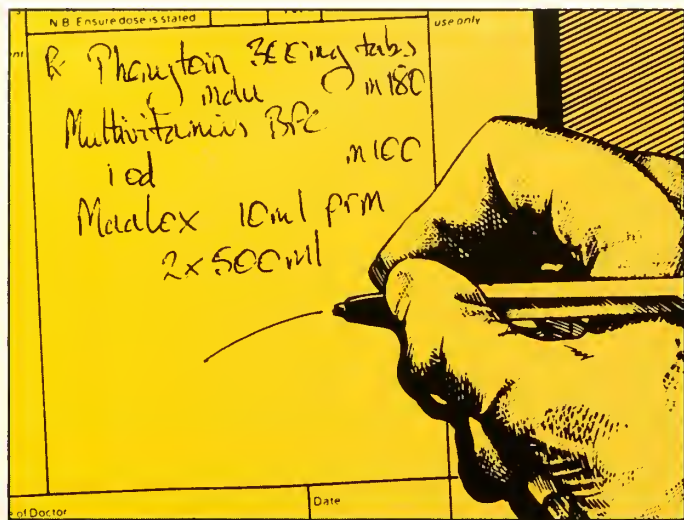 N.B. Ensure dose is stated
use only
R Phenytoin 300mg tabs
m180
Multivitamins BPC
i od m100
Maalox 10ml prn
2x500ml
of Doctor
Date